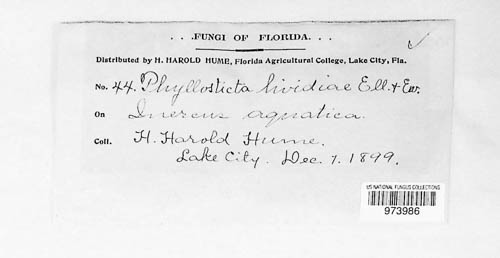 . . .FUNGI OF FLORIDA. . .
Distributed by H. HAROLD HUME, Florida Agricultural College, Lake City, Fla.
No. 44. Phyllosticta lividiae Ell. & Ev.
On Quercus aquatica.
Coll. H. Harold Hume.
Lake City. Dec. 7. 1899.
US NATIONAL FUNGUS COLLECTIONS
973986